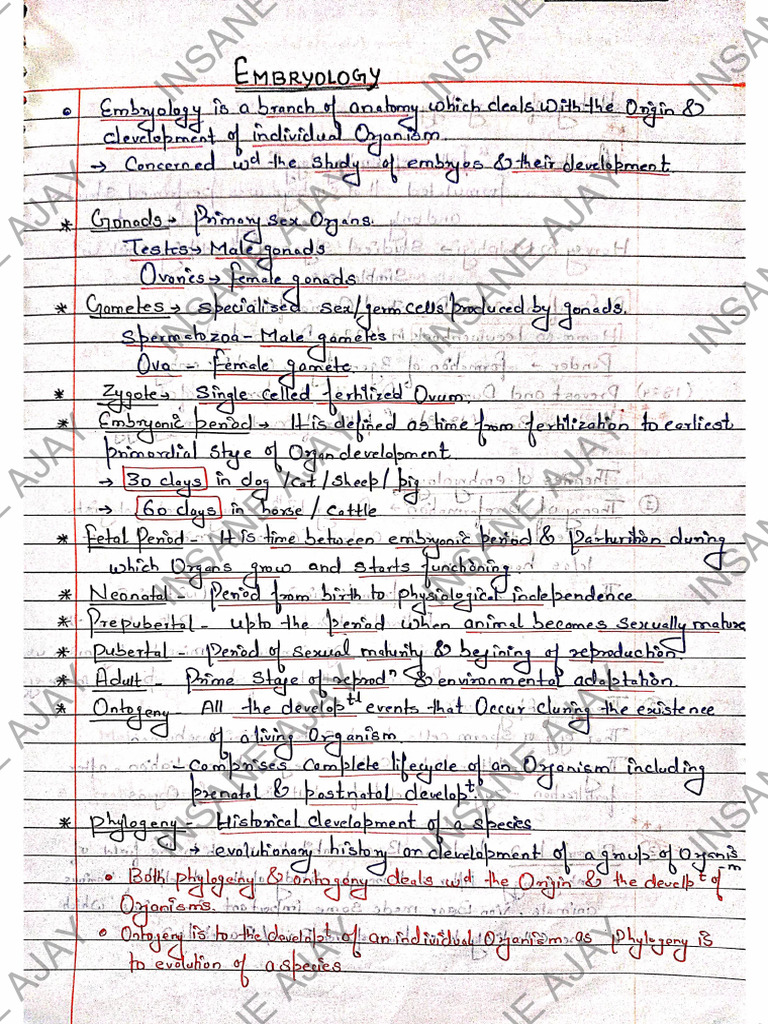 EMBRYOLOGY
• Embryology is a branch of anatomy which deals with the Origin &
development of individual Organism.
→ Concerned wd the study of embryos & their development.
* Gonads → Primary sex Organs.
Testes → Male gonads
Ovaries → female gonads
* Gametes → specialised sex/germ cells produced by gonads.
Spermatozoa - Male gametes
Ova - female gamete
* Zygote → Single celled fertilized Ovum.
* Embryonic period → It is defined as time from fertilization to earliest
primordial stage of Organ development.
→ 30 days in dog / cat / sheep / pig
→ 60 days in horse / cattle
* Fetal Period - It is time between embryonic period & Parturition during
which Organs grow and starts functioning
* Neonatal - Period from birth to physiological independence
* Prepubertal - upto the period when animal becomes sexually mature
* Pubertal - Period of sexual maturity & begining of reproduction.
* Adult - Prime Stage of reprodn & environmental adaptation.
* Ontogeny - All the developtl events that Occur during the existence
of a living Organism
- comprises complete lifecycle of an Organism including
prenatal & postnatal developt.
* Phylogeny - Historical development of a species
→ evolutionary history or development of a group of Organism
• Both phylogeiny & ontogony deals wd the Origin & the develpt of
Organisms.
• Ontogeny is to the developt of an individual Organism as Phylogeny is
to evolution of a species
INSANE AJAY